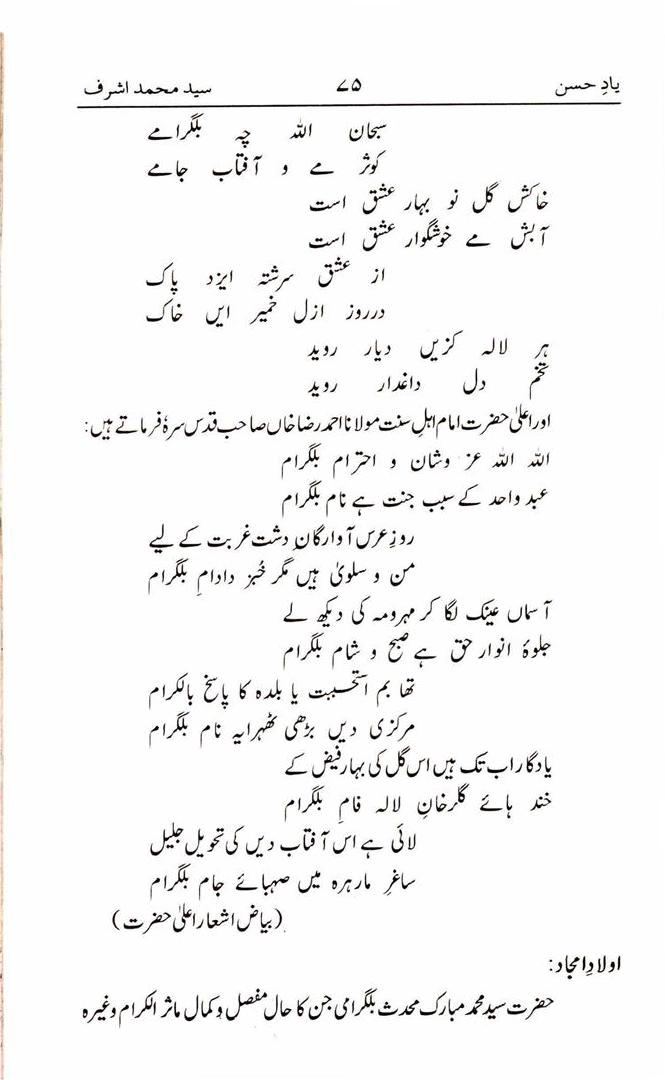 یادِ حسن ۷۵ سید محمد اشرف
سبحان اللہ چہ بلگرامے
کوثر مے و آفتاب جامے
خاکش گل نو بہار عشق است
آبش مے خوشگوار عشق است
از عشق سرشتہ ایزد پاک
درروز ازل خمیر ایں خاک
ہر لالہ کزیں دیار روید
تخم دل داغدار روید
اور اعلیٰ حضرت امام اہلِ سنت مولانا احمد رضا خاں صاحب قدس سرہٗ فرماتے ہیں:
اللہ اللہ عز وشان و احترام بلگرام
عبد واحد کے سبب جنت ہے نام بلگرام
روزِ عرس آوارگانِ دشت غربت کے لیے
من و سلویٰ ہیں مگر خُبز دادامِ بلگرام
آسماں عینک لگا کر مہرومہ کی دیکھ لے
جلوۂ انوار حق ہے صبح و شام بلگرام
تھا بم استحببت یا بلدہ کا پاسخ بالکرام
مرکزی دیں بڑھی ٹھہرایہ نام بلگرام
یادگار اب تک ہیں اس گل کی بہار فیض کے
خند ہائے گلرخانِ لالہ فامِ بلگرام
لائی ہے اس آفتاب دیں کی تحویل جلیل
ساغرِ مارہرہ میں صہبائے جام بلگرام
(بیاض اشعار اعلیٰ حضرت)
اولادِ امجاد:
حضرت سید محمد مبارک محدث بلگرامی جن کا حال مفصل و کمال ماثر الکرام وغیرہ